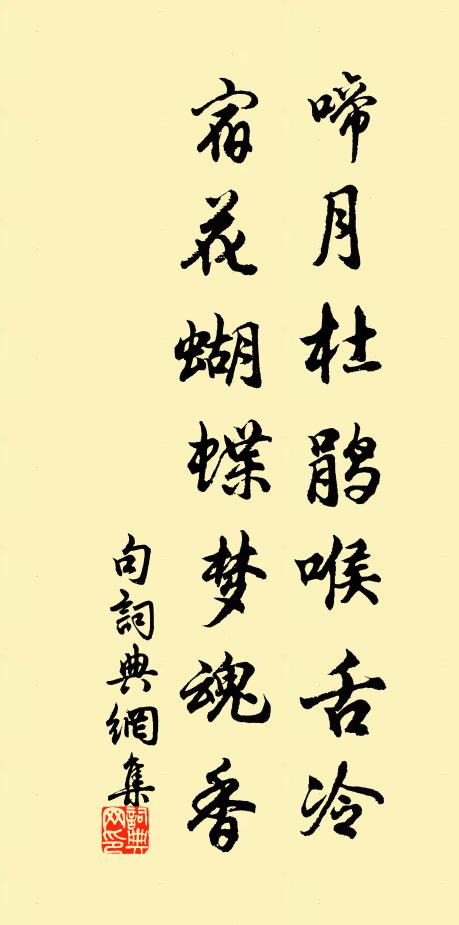 啼月杜鹃喉舌冷
宿花蝴蝶梦魂香
句詞典網集
詞典网印